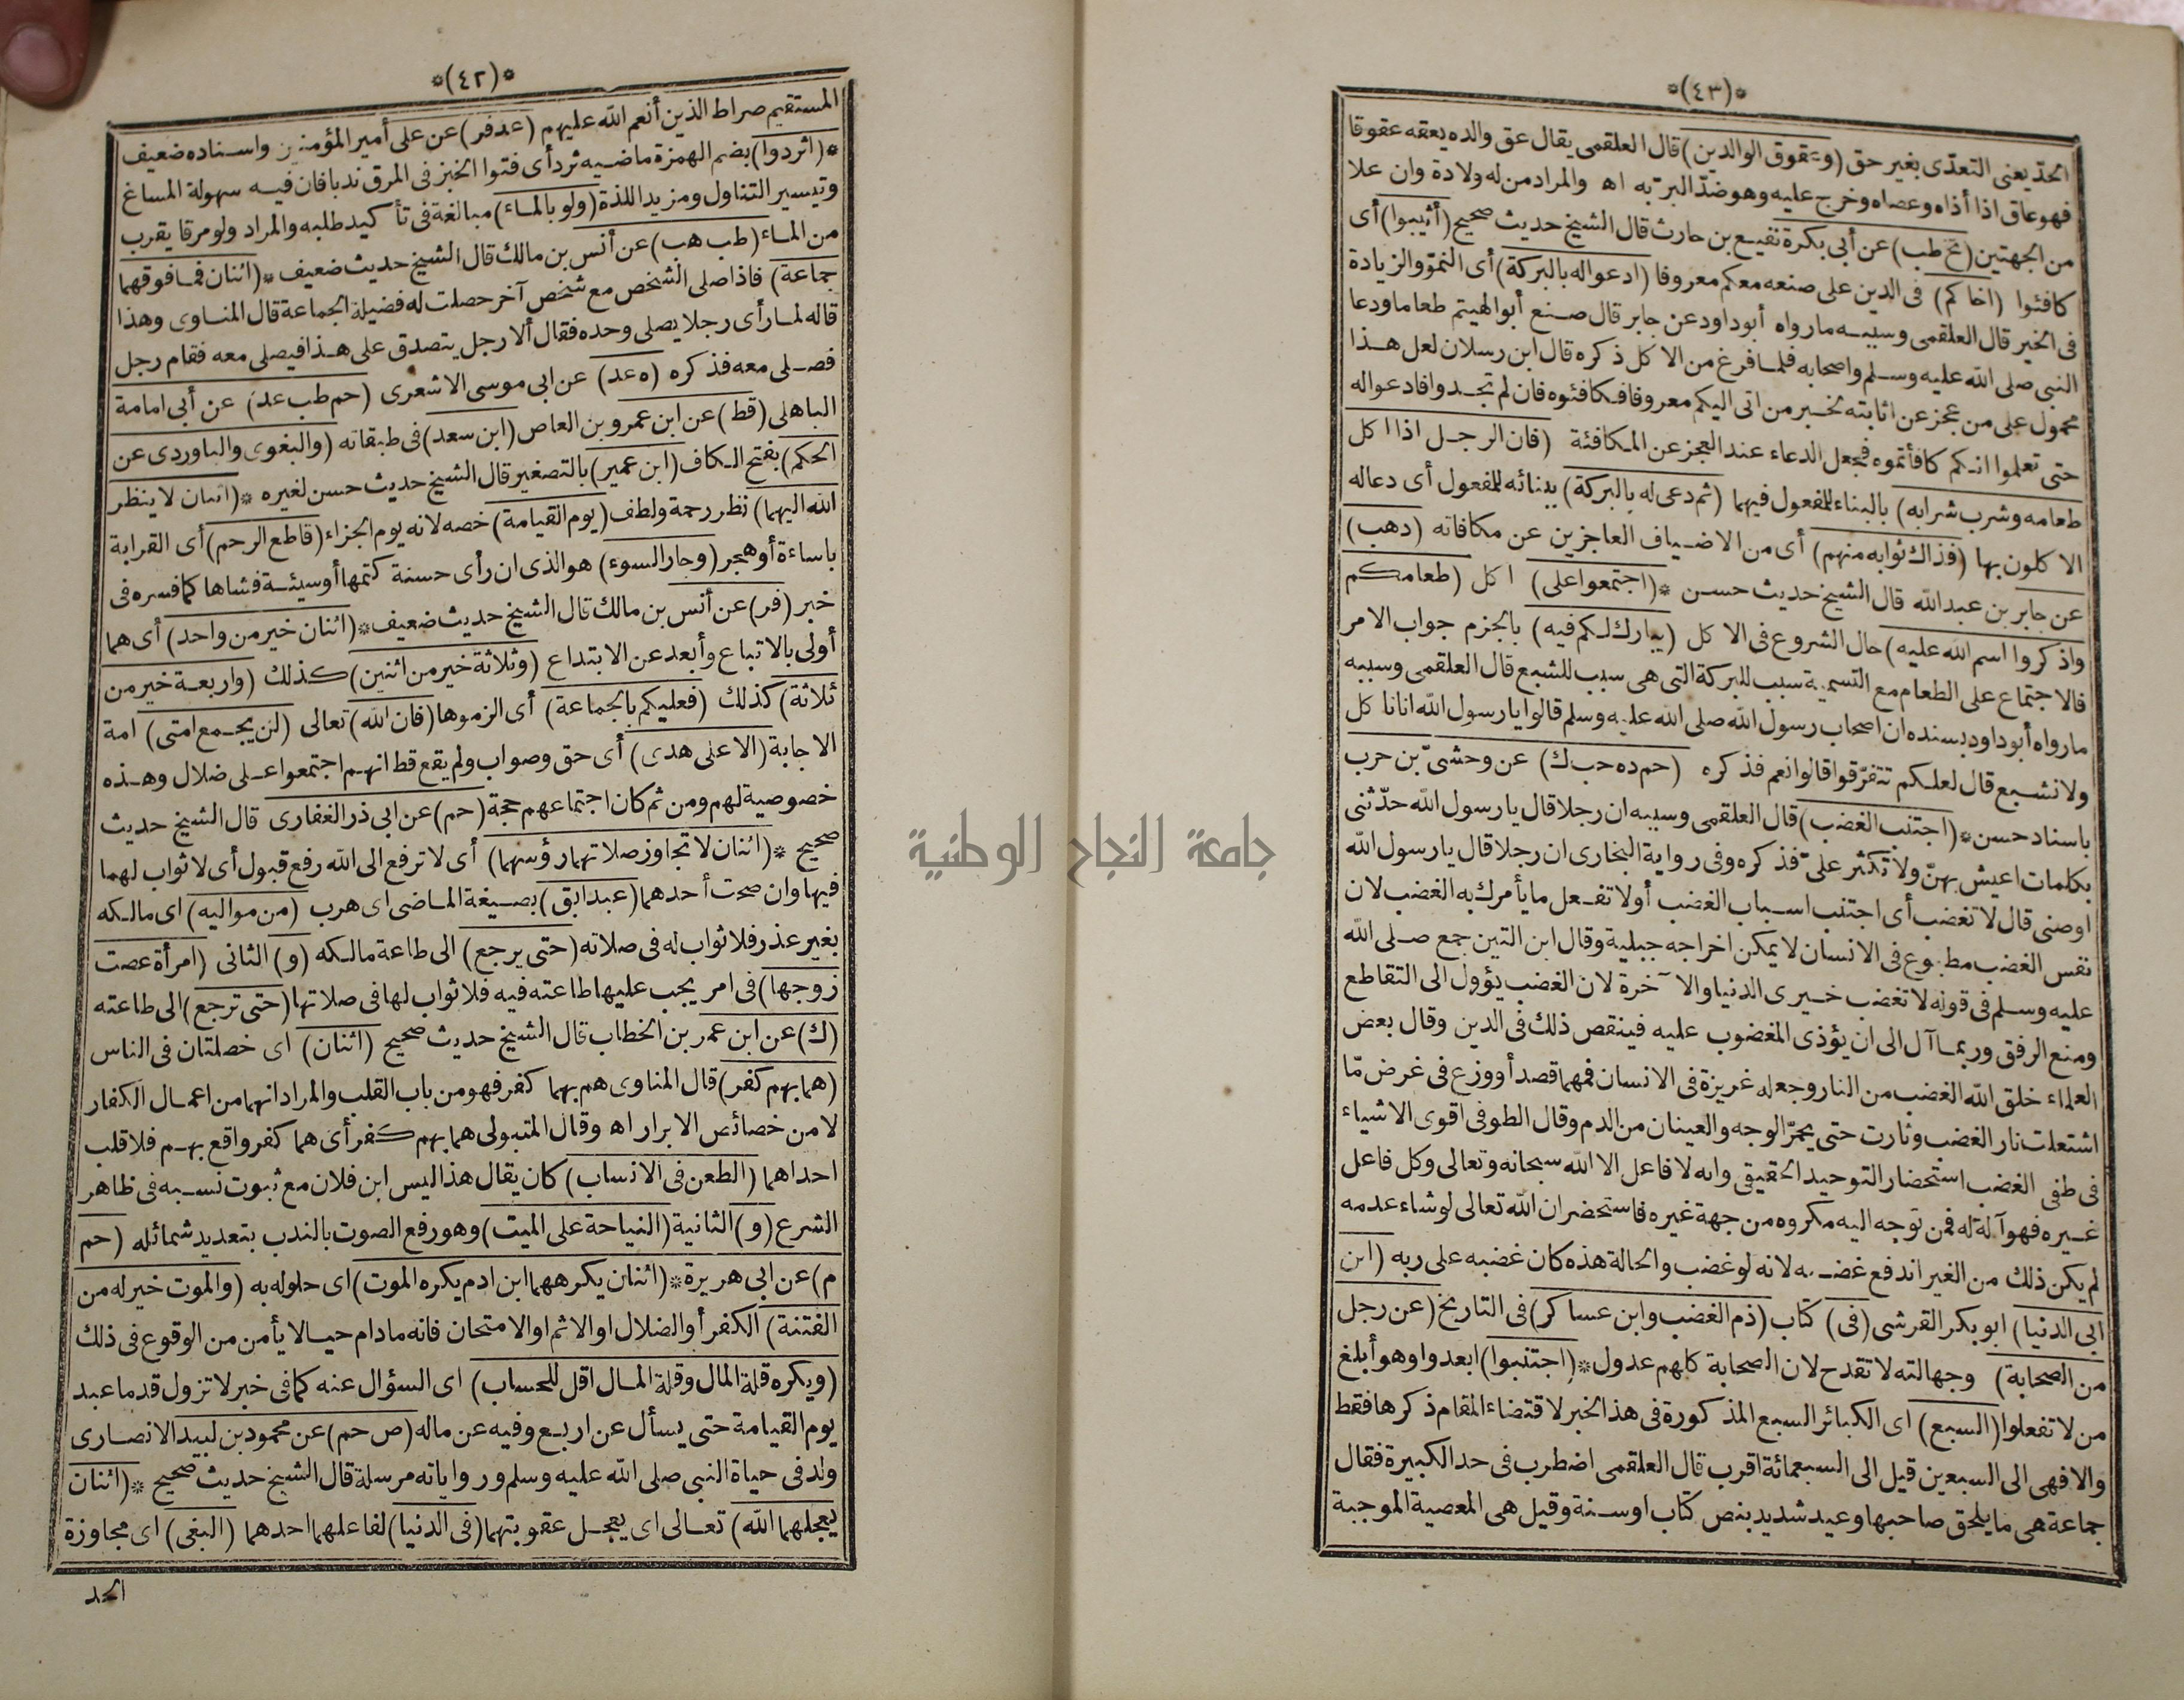 *(٤٢)*
المستقيم صراط الذين أنعم الله عليهم (عدفر) عن على أمير المؤمنين واسناده ضعيف
*(اثردوا) بضم الهمزة ماضيه ثرد أى فتوا الخبز فى المرق ندبا فان فيه سهولة المساغ
وتيسير التناول ومزيد اللذة (ولو بالماء) مبالغة فى تأكيد طلبه والمراد ولو مرقا يقرب
من الماء (طب هب) عن أنس بن مالك قال الشيخ حديث ضعيف *(اثنان فما فوقهما
جماعة) فاذا صلى الشخص مع شخص آخر حصلت له فضيلة الجماعة قال المناوى وهذا
قاله لما رأى رجلا يصلى وحده فقال ألا رجل يتصدق على هذا فيصلى معه فقام رجل
فصلى معه فذكره (ه عد) عن ابى موسى الاشعرى (حم طب عد) عن أبى امامة
الباهلى (قط) عن ابن عمرو بن العاص (ابن سعد) فى طبقاته (والبغوى والباوردى عن
الحكم) بفتح الكاف (ابن عمير) بالتصغير قال الشيخ حديث حسن لغيره *(اثنان لا ينظر
الله اليهما) نظر رحمة ولطف (يوم القيامة) خصه لانه يوم الجزاء (قاطع الرحم) أى القرابة
باساءة أو هجر (وجار السوء) هو الذى ان رأى حسنة كتمها أو سيئة فشاها كما فسره فى
خبر (فر) عن أنس بن مالك قال الشيخ حديث ضعيف *(اثنان خير من واحد) أى هما
أولى بالاتباع وأبعد عن الابتداع (وثلاثة خير من اثنين) كذلك (واربعة خير من
ثلاثة) كذلك (فعليكم بالجماعة) أى الزموها (فان الله) تعالى (لن يجمع امتى) امة
الاجابة (الا على هدى) أى حق وصواب ولم يقع قط انهم اجتمعوا على ضلال وهذه
خصوصية لهم ومن ثم كان اجتماعهم حجة (حم) عن ابى ذر الغفارى قال الشيخ حديث
صحيح *(اثنان لا تجاوز صلاتهما رؤسهما) أى لا ترفع الى الله رفع قبول أى لا ثواب لهما
فيها وان صحت أحدهما (عبد ابق) بصيغة الماضى اى هرب (من مواليه) اى مالكه
بغير عذر فلا ثواب له فى صلاته (حتى يرجع) الى طاعة مالكه (و) الثانى (امرأة عصت
زوجها) فى امر يجب عليها طاعته فيه فلا ثواب لها فى صلاتها (حتى ترجع) الى طاعته
(ك) عن ابن عمر بن الخطاب قال الشيخ حديث صحيح (اثنان) اى خصلتان فى الناس
(هما بهم كفر) قال المناوى هم بهما كفر فهو من باب القلب والمراد انهما من اعمال الكفار
لا من خصائص الابرار اه وقال المتبولى هما بهم كفر أى هما كفر واقع بهم فلا قلب
احداهما (الطعن فى الانساب) كان يقال هذا ليس ابن فلان مع ثبوت نسبه فى ظاهر
الشرع (و) الثانية (النياحة على الميت) وهو رفع الصوت بالندب بتعديد شمائله (حم
م) عن ابى هريرة *(اثنان يكرههما ابن ادم يكره الموت) اى حلوله به (والموت خير له من
الفتنة) الكفر أو الضلال او الاثم او الامتحان فانه مادام حيا لا يأمن من الوقوع فى ذلك
(ويكره قلة المال وقلة المال اقل للحساب) اى السؤال عنه كما فى خبر لا تزول قدما عبد
يوم القيامة حتى يسأل عن اربع وفيه عن ماله (ص حم) عن محمود بن لبيد الانصارى
ولد فى حياة النبى صلى الله عليه وسلم ورواياته مرسلة قال الشيخ حديث صحيح *(اثنان
يعجلهما الله) تعالى اى يعجل عقوبتهما (فى الدنيا) لفاعلهما احدهما (البغى) اى مجاوزة
الحد
*(٤٣)*
الحدّ يعنى التعدّى بغير حق (وعقوق الوالدين) قال العلقمى يقال عق والده يعقه عقوقا
فهو عاق اذا أذاه وعصاه وخرج عليه وهو ضدّ البرّ به اه والمراد من له ولادة وان علا
من الجهتين (تخ طب) عن أبى بكرة نفيع بن حارث قال الشيخ حديث صحيح (أثيبوا) أى
كافئوا (اخاكم) فى الدين على صنعه معكم معروفا (ادعوا له بالبركة) أى النموّ والزيادة
فى الخير قال العلقمى وسببه ما رواه أبو داود عن جابر قال صنع أبو الهيتم طعاما ودعا
النبى صلى الله عليه وسلم واصحابه فلما فرغ من الاكل ذكره قال ابن رسلان لعل هذا
محمول على من عجز عن اثابته لخبر من اتى اليكم معروفا فكافئوه فان لم تجدوا فادعوا له
حتى تعلموا انكم كافأتموه فجعل الدعاء عند العجز عن المكافئة (فان الرجل اذا اكل
طعامه وشرب شرابه) بالبناء للمفعول فيهما (ثم دعى له بالبركة) ببنائه للمفعول أى دعا له
الاكلون بها (فذاك ثوابه منهم) أى من الاضياف العاجزين عن مكافاته (دهب)
عن جابر بن عبد الله قال الشيخ حديث حسن *(اجتمعوا على) اكل (طعامكم
واذكروا اسم الله عليه) حال الشروع فى الاكل (يبارك لكم فيه) بالجزم جواب الامر
فالاجتماع على الطعام مع التسمية سبب للبركة التى هى سبب للشبع قال العلقمى وسببه
ما رواه أبو داود بسنده ان اصحاب رسول الله صلى الله عليه وسلم قالوا يا رسول الله انا ناكل
ولا نشبع قال لعلكم تتفرّقوا قالوا نعم فذكره (حم ده حب ك) عن وحشىّ بن حرب
باسناد حسن *(اجتنب الغضب) قال العلقمى وسببه ان رجلا قال يا رسول الله حدّثنى
بكلمات اعيش بهنّ ولا تكثر علىّ فذكره وفى رواية البخارى ان رجلا قال يا رسول الله
اوصنى قال لا تغضب أى اجتنب اسباب الغضب أو لا تفعل ما يأمرك به الغضب لان
نفس الغضب مطبوع فى الانسان لا يمكن اخراجه جبلية وقال ابن التين جمع صلى الله
عليه وسلم فى قوله لا تغضب خيرى الدنيا والآخرة لان الغضب يؤول الى التقاطع
ومنع الرفق وربما آل الى ان يؤذى المغضوب عليه فينقص ذلك فى الدين وقال بعض
العلماء خلق الله الغضب من النار وجعله غريزة فى الانسان فمهما قصد أو وزع فى غرض مّا
اشتعلت نار الغضب وثارت حتى يحمرّ الوجه والعينان من الدم وقال الطوفى اقوى الاشياء
فى طفى الغضب استحضار التوحيد الحقيقى وانه لا فاعل الا الله سبحانه وتعالى وكل فاعل
غيره فهو آلة له فمن توجه اليه مكروه من جهة غيره فاستحضر ان الله تعالى لو شاء عدمه
لم يكن ذلك من الغير اندفع غضبه لانه لو غضب والحالة هذه كان غضبه على ربه (ابن
ابى الدنيا) ابو بكر القرشى (فى) كتاب (ذم الغضب وابن عساكر) فى التاريخ (عن رجل
من الصحابة) وجهالته لا تقدح لان الصحابة كلهم عدول *(اجتنبوا) ابعدوا وهو أبلغ
من لا تفعلوا (السبع) اى الكبائر السبع المذكورة فى هذا الخبر لاقتضاء المقام ذكرها فقط
والا فهى الى السبعين قيل الى السبعمائة اقرب قال العلقمى اضطرب فى حد الكبيرة فقال
جماعة هى ما يلحق صاحبها وعيد شديد بنص كتاب او سنة وقيل هى المعصية الموجبة
جامعة النجاح الوطنية